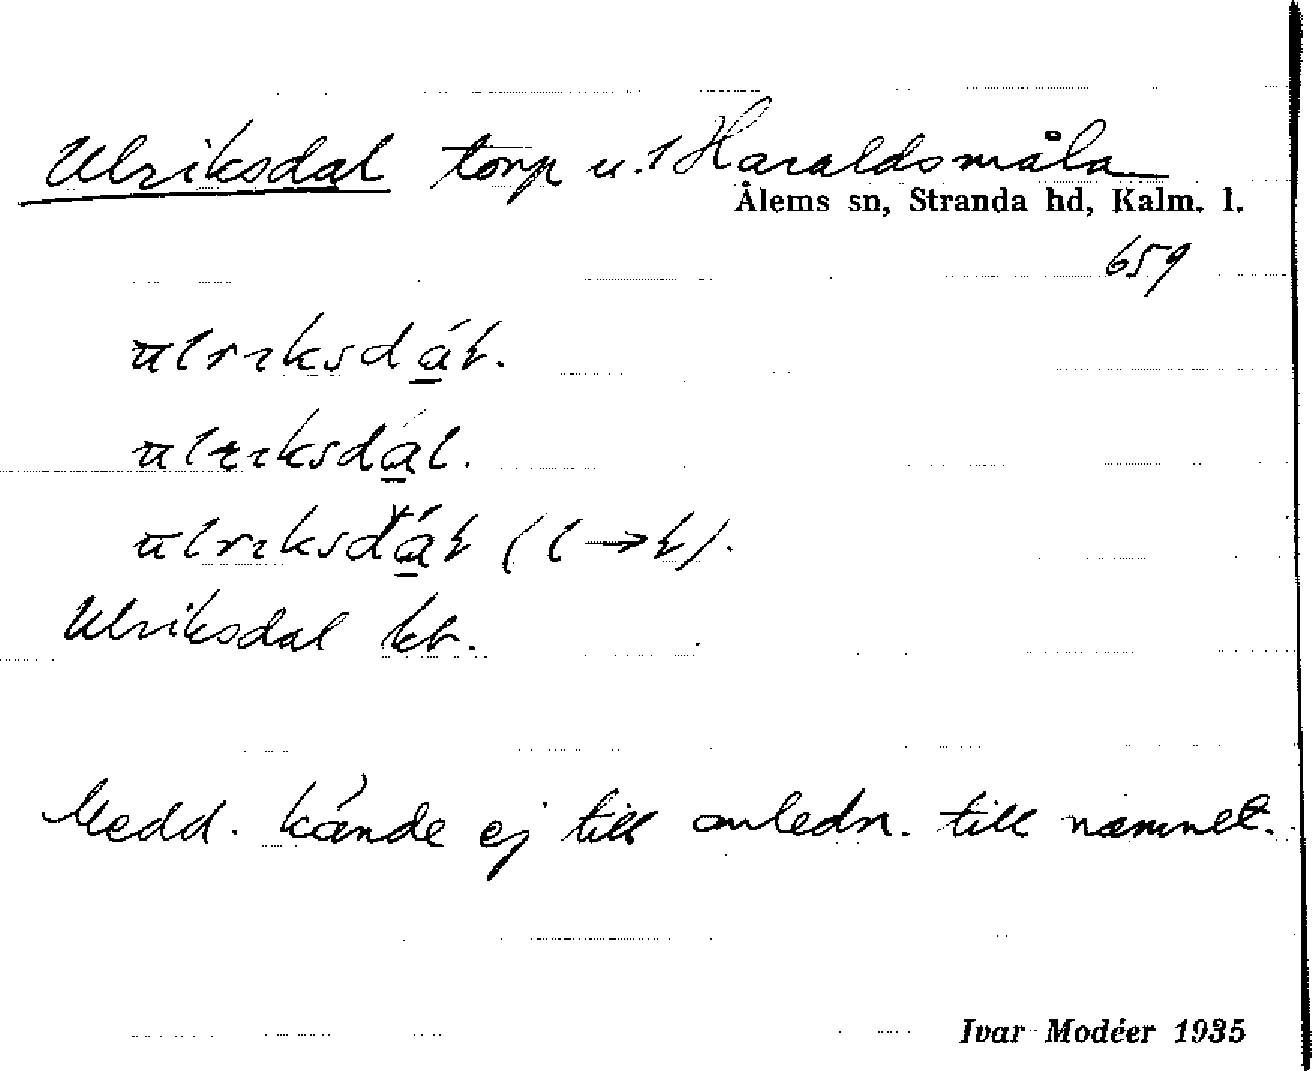 Ulriksdal torp u. 1 Haraldsmåla
Ålems sn, Stranda hd, Kalm. l.
659
Ulriksdal kt.
Medd. kände ej till anledn. till namnet.
Ivar Modéer 1935